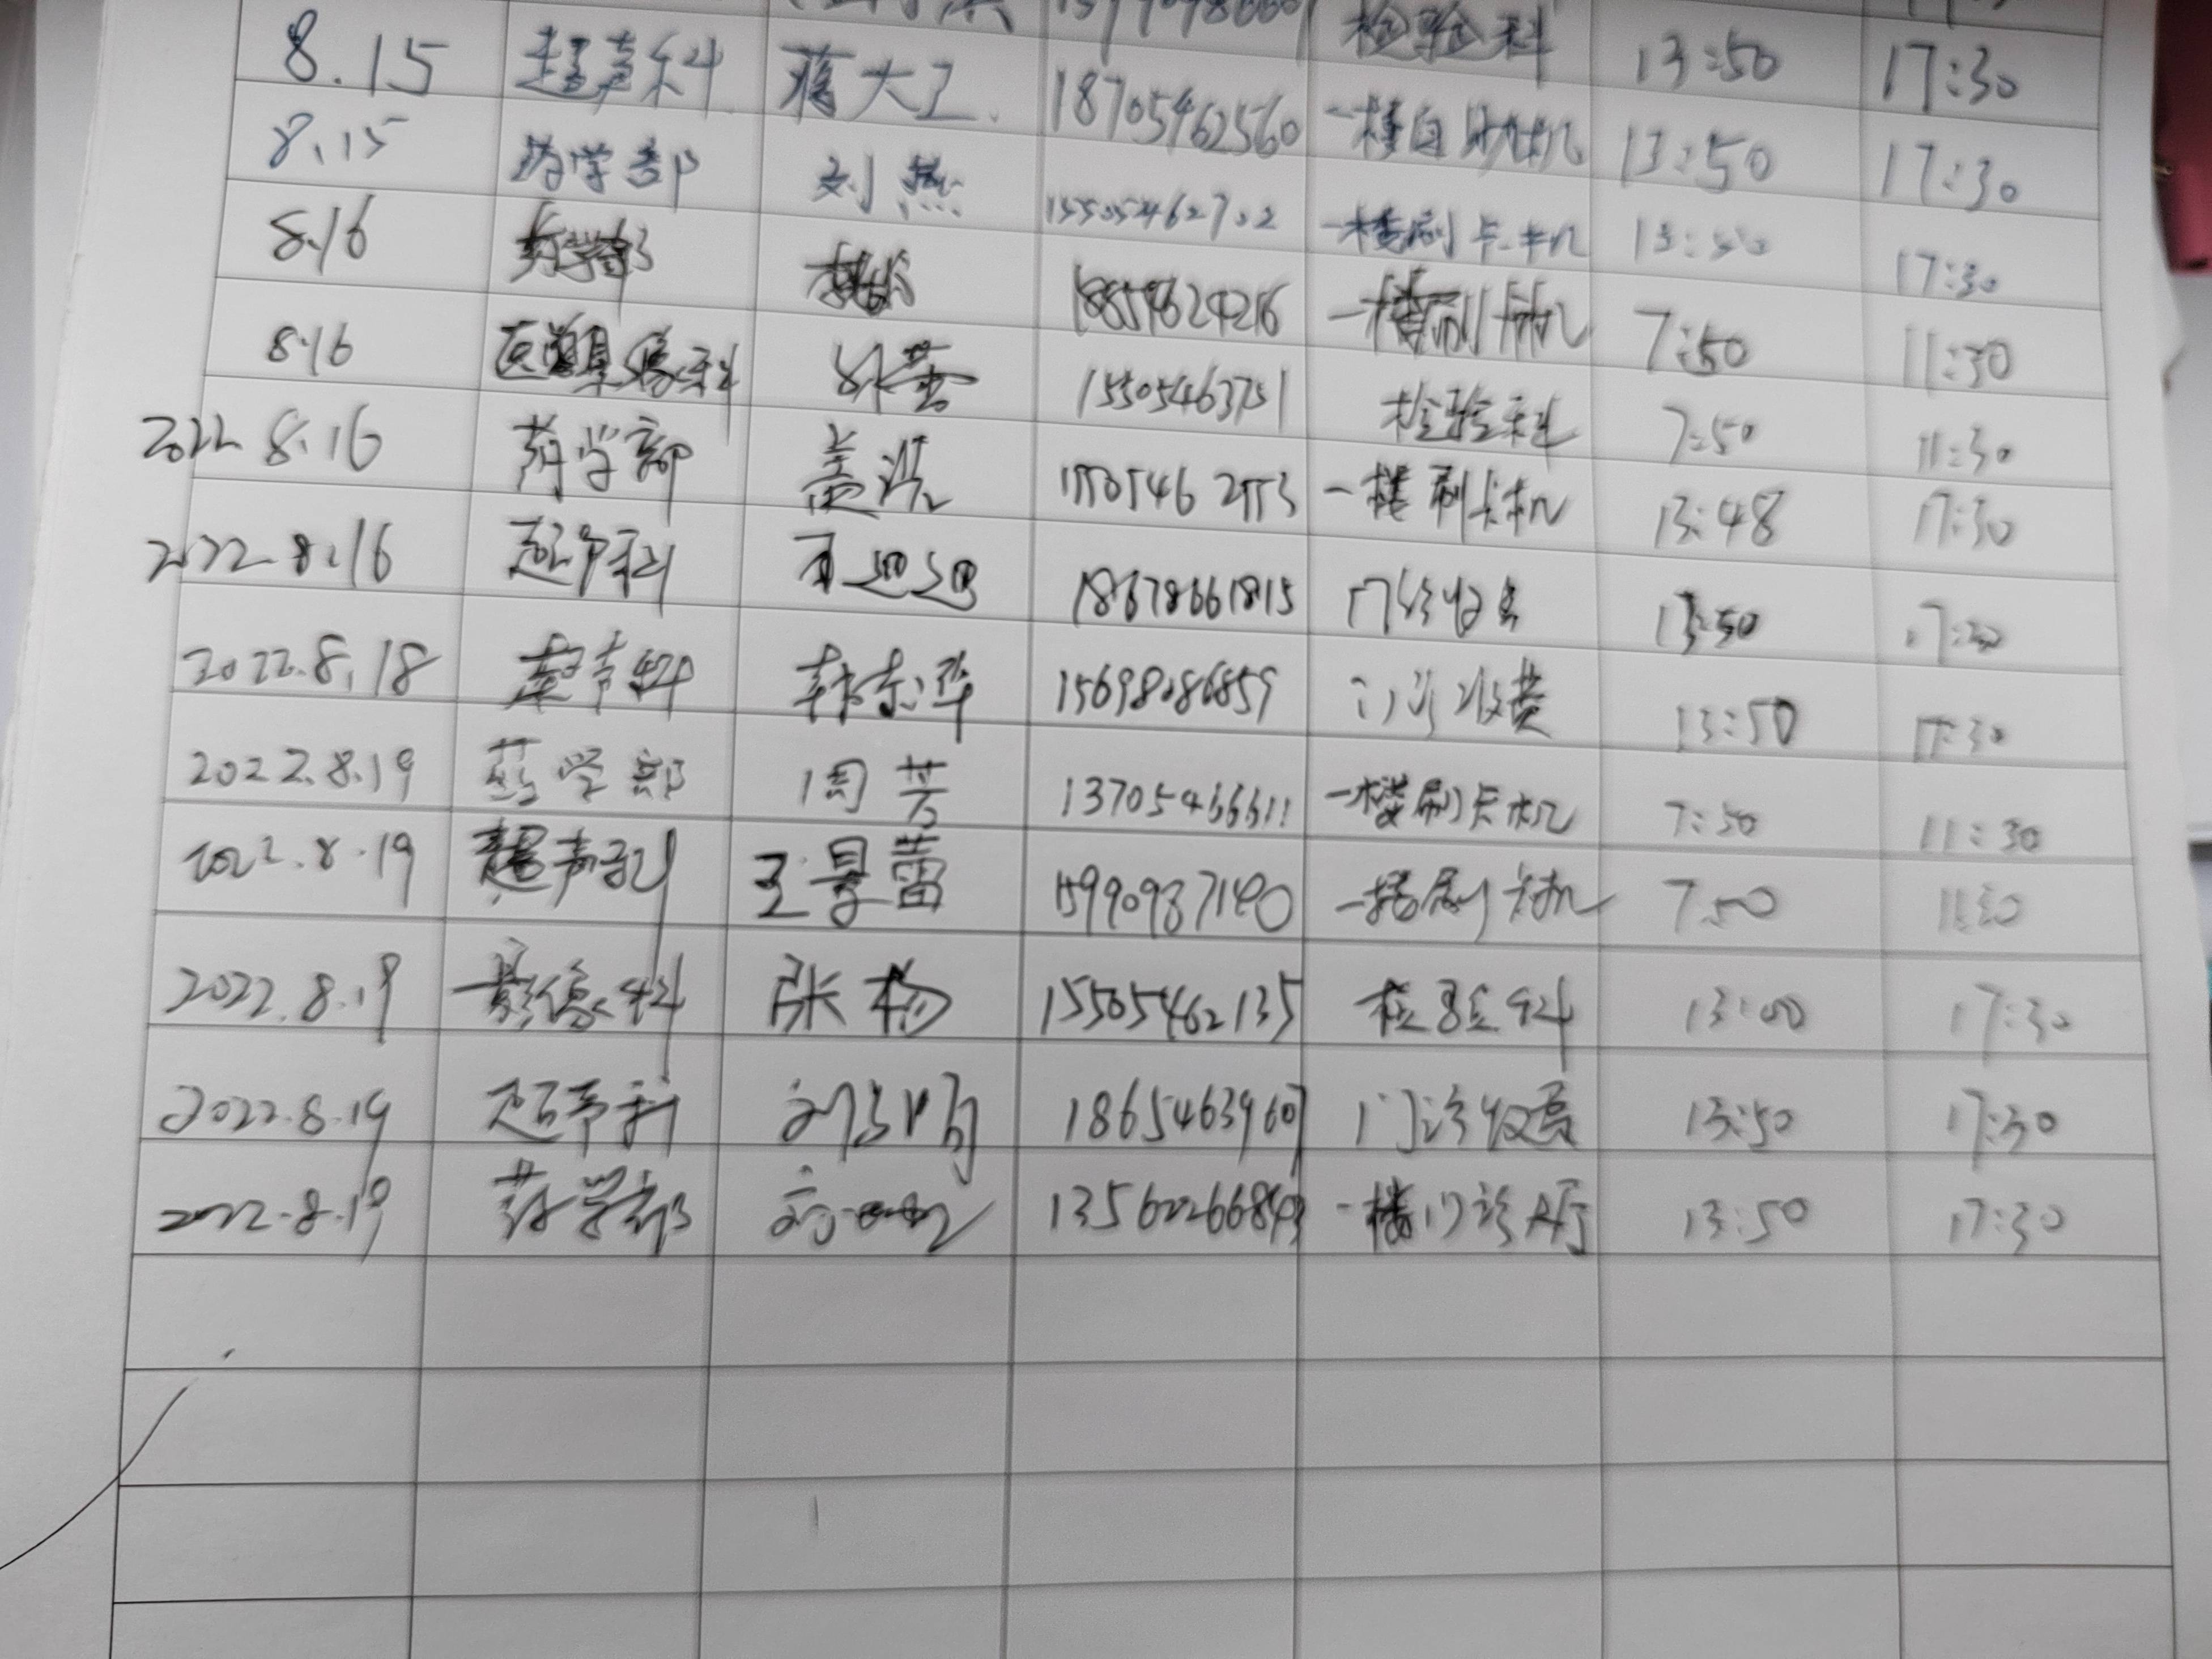 检验科 13:50 17:30
8.15 超声科 蒋大卫 18705462560 一楼自助机 13:50 17:30
8.15 药学部 刘燕 15505462702 一楼刷卡机 13:50 17:30
8.16 药学部 18854624216 一楼刷卡机 7:50 11:30
8.16 医学影像科 15505463751 检验科 7:50 11:30
2022 8.16 药学部 盖洪 一楼刷卡机 13:48 17:30
2022.8.16 超声科 18678661815 门诊收费 13:50 17:30
2022.8.18 超声科 韩东华 15698086859 门诊收费 13:50 17:30
2022.8.19 药学部 周芳 13705466611 一楼刷卡机 7:50 11:30
2022.8.19 超声科 王景蕾 15990987140 一楼刷卡机 7:50 11:30
2022.8.19 影像科 张杨 15505462135 检验科 13:00 17:30
2022.8.19 超声科 18654639607 门诊收费 13:50 17:30
2022.8.19 药学部 一楼门诊厅 13:50 17:30